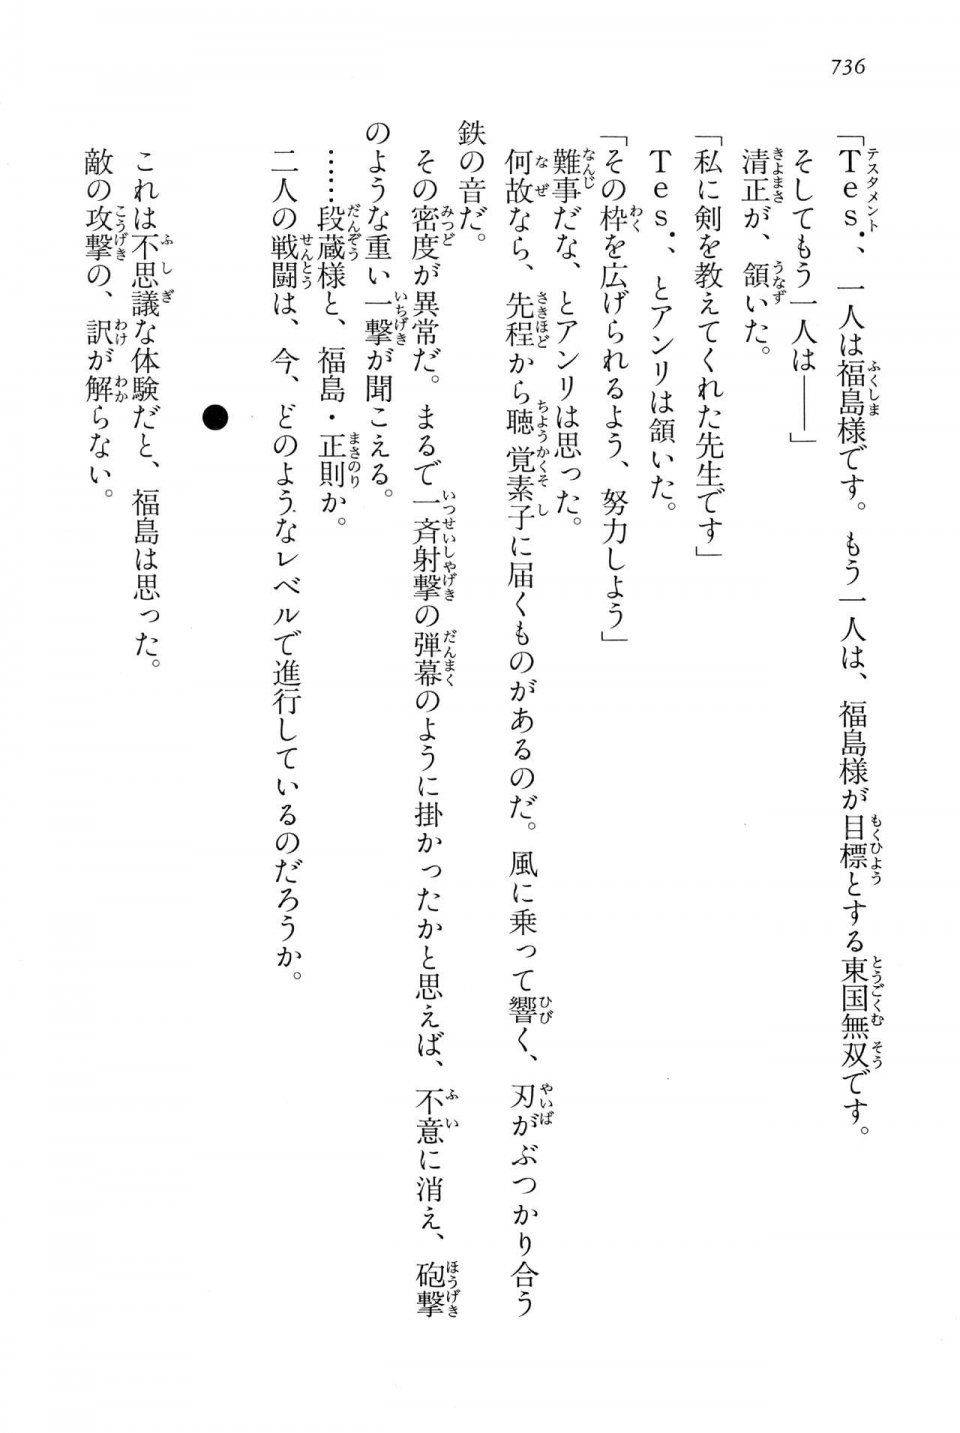 736
「Tes.、一人は福島様です。もう一人は、福島様が目標とする東国無双です。
そしてもう一人は――」
清正が、頷いた。
「私に剣を教えてくれた先生です」
Tes.、とアンリは頷いた。
「その枠を広げられるよう、努力しよう」
難事だな、とアンリは思った。
何故なら、先程から聴覚素子に届くものがあるのだ。風に乗って響く、刃がぶつかり合う
鉄の音だ。
その密度が異常だ。まるで一斉射撃の弾幕のように掛かったかと思えば、不意に消え、砲撃
のような重い一撃が聞こえる。
……段蔵様と、福島・正則か。
二人の戦闘は、今、どのようなレベルで進行しているのだろうか。
●
これは不思議な体験だと、福島は思った。
敵の攻撃の、訳が解らない。